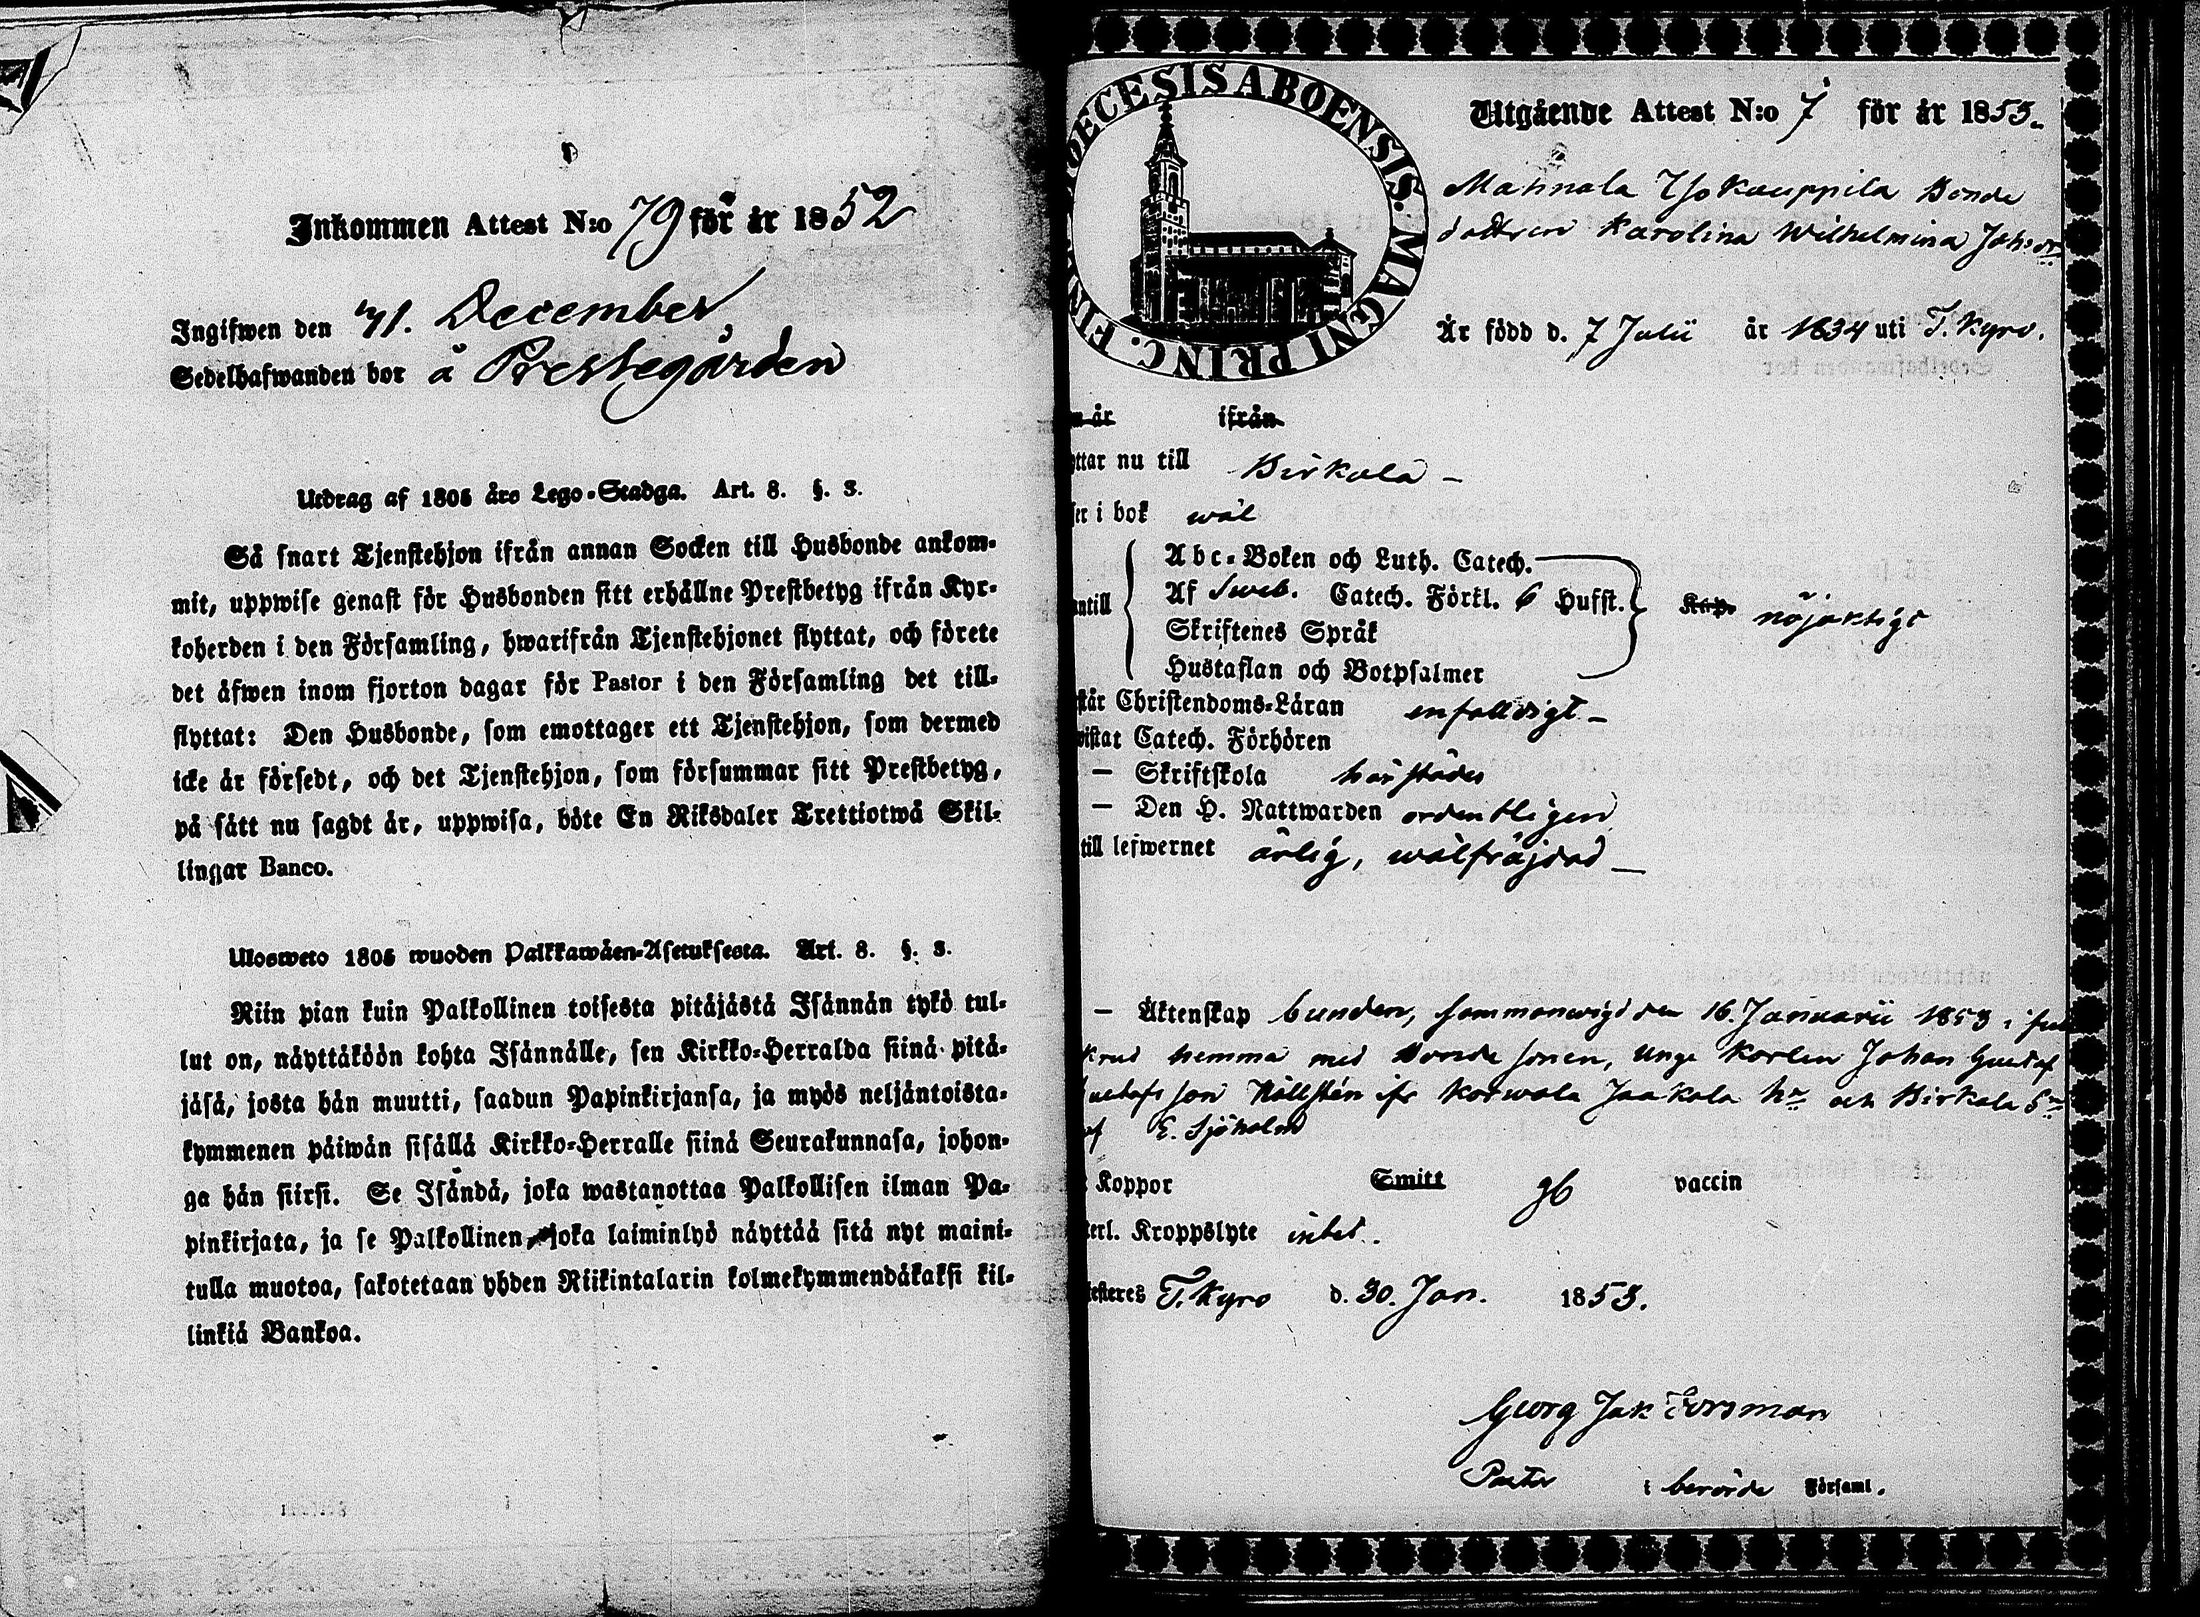 Inkommen Attest N:o 79 för år 1852
Ingifwen den 31. December
Sedelhafwanden bor å Prestegården
Utdrag af 1805 års Lego-Stadga. Art. 8. §. 3.
Så snart Tjenstehjon ifrån annan Socken till Husbonde ankom-
mit, uppwise genast för Husbonden sitt erhållne Prestbetyg ifrån Kyr-
koherden i den Församling, hwarifrån Tjenstehjonet flyttat, och förete
det äfwen inom fjorton dagar för Pastor i den Församling det till-
flyttat: Den Husbonde, som emottager ett Tjenstehjon, som dermed
icke är försedt, och det Tjenstehjon, som försummar sitt Prestbetyg,
på sätt nu sagdt är, uppwisa, böte En Riksdaler Trettiotwå Skil-
lingar Banco.
Ulosweto 1805 wuoden Palkkawäen-Asetuksesta. Art. 8. §. 3.
Niin pian kuin Palkollinen toisesta pitäjästä Isännän tykö tul-
lut on, näyttäköön kohta Isännälle, sen Kirkko-Herralda siinä pitä-
jäsä, josta hän muutti, saadun Papinkirjansa, ja myös neljäntoista-
kymmenen päiwän sisällä Kirkko-Herralle siinä Seurakunnasa, johon-
ga hän siirsi. Se Isändä, joka wastanottaa Palkollisen ilman Pa-
pinkirjata, ja se Palkollinen, joka laiminlyö näyttää sitä nyt maini-
tulla muotoa, sakotetaan yhden Riikintalarin kolmekymmendäkaksi kil-
linkiä Bankoa.
DIOECESIS ABOENSIS. MAGNI PRINC. FIN
Utgående Attest N:o 7 för år 1853.
Mahnala Iso Kauppila Bonde
dottren Karolina Wilhelmina Johs dr
Är född d. 7 Julii år 1834 uti T. Kyro.
n år ifrån
ttar nu till Birkala
ser i bok wäl
antill Abc-Boken och Luth. Catech.
Af Sweb. Catech. Förkl. 6 Husst. Kap. nöjaktigt
Skriftenes Språk
Hustaflan och Botpsalmer
står Christendoms-Läran enfaldigt
wistat Catech. Förhören
— Skriftskola härstädes
— Den H. Nattwarden ordentligen
till lefwernet ärlig, wälfräjdad
— Äktenskap bunden, sammanwigd den 16. Januarii 1853 i
krud hemma med Bonde sonen, Unge Karlen Johan Gustaf
Gustafs son Hällstén ifr Korwola Jaakola hn och Birkala Sn
af E. Sjöholm
Koppor Smitt gb vaccin
erl. Kroppslyte intet.
testeres T. Kyro d. 30. Jan. 1853.
Georg Jak Forsman
Pastor i berörde Församl.